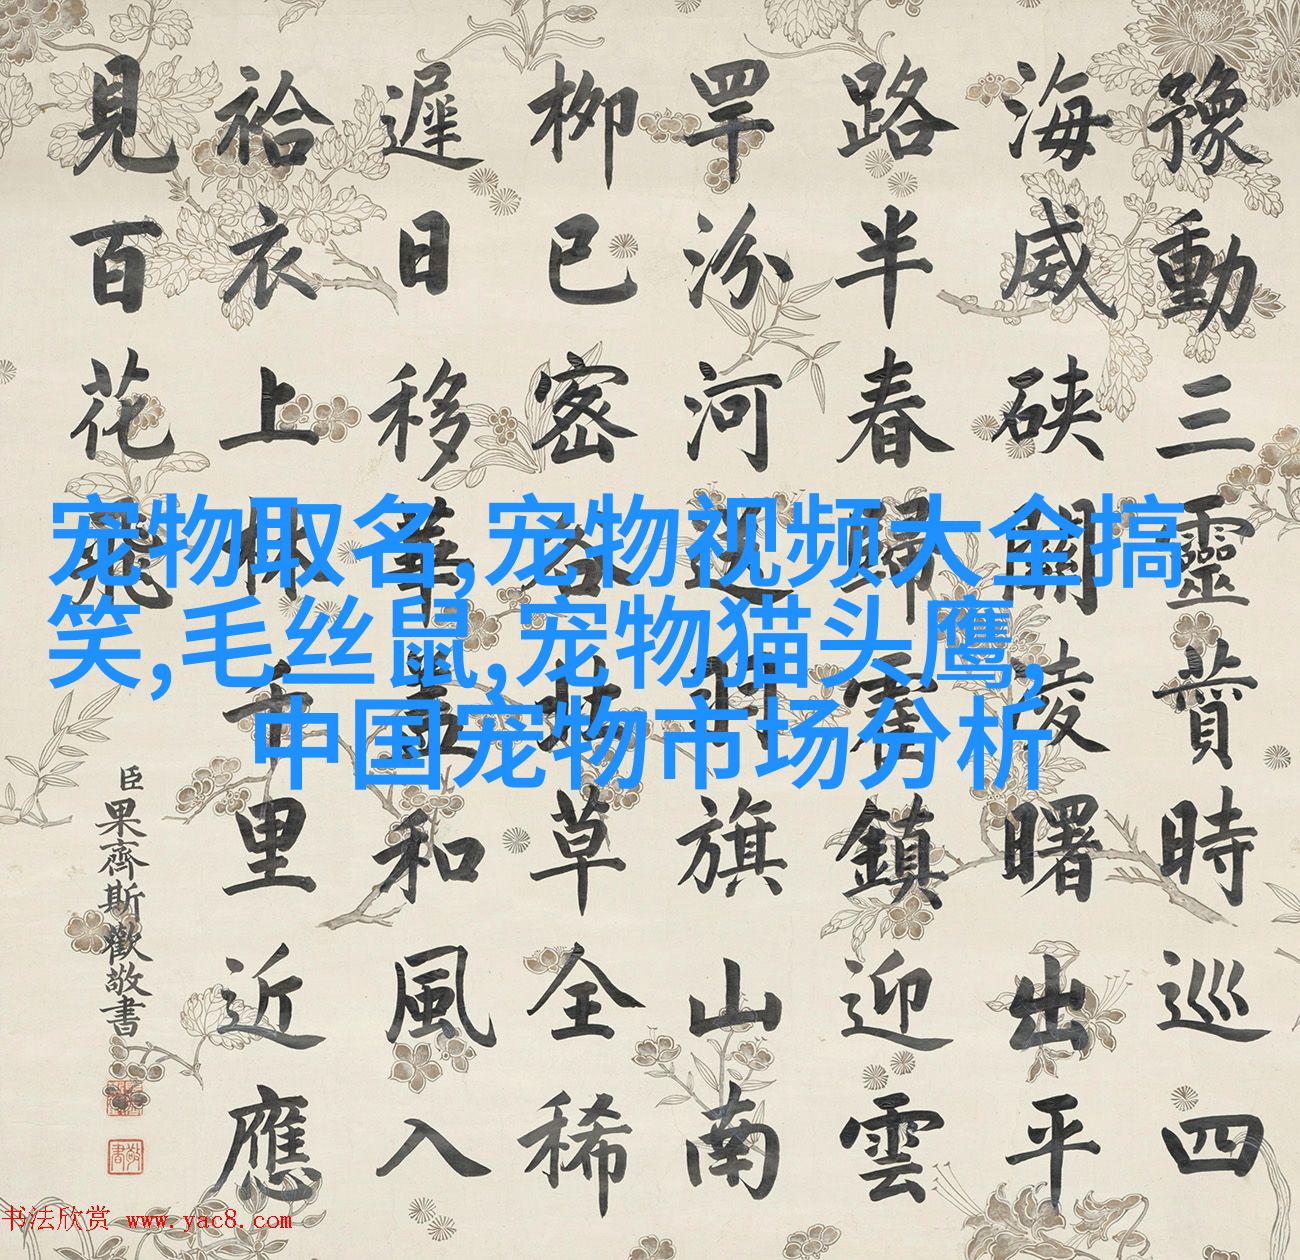 豫動三靈賁時巡四
海威硖關凌曙出平
路半春歸霍鎮迎雲
罕汾河羽旗山南
柳已密谷草全稀
遲日移華蓋和風入
袷衣上千里近應
見百花飛
臣果齊斯歡敬書
宠物取名,宠物视频大全搞
笑,毛丝鼠,宠物猫头鹰,
中国宠物市场分析
书法欣赏 www.yac8.com